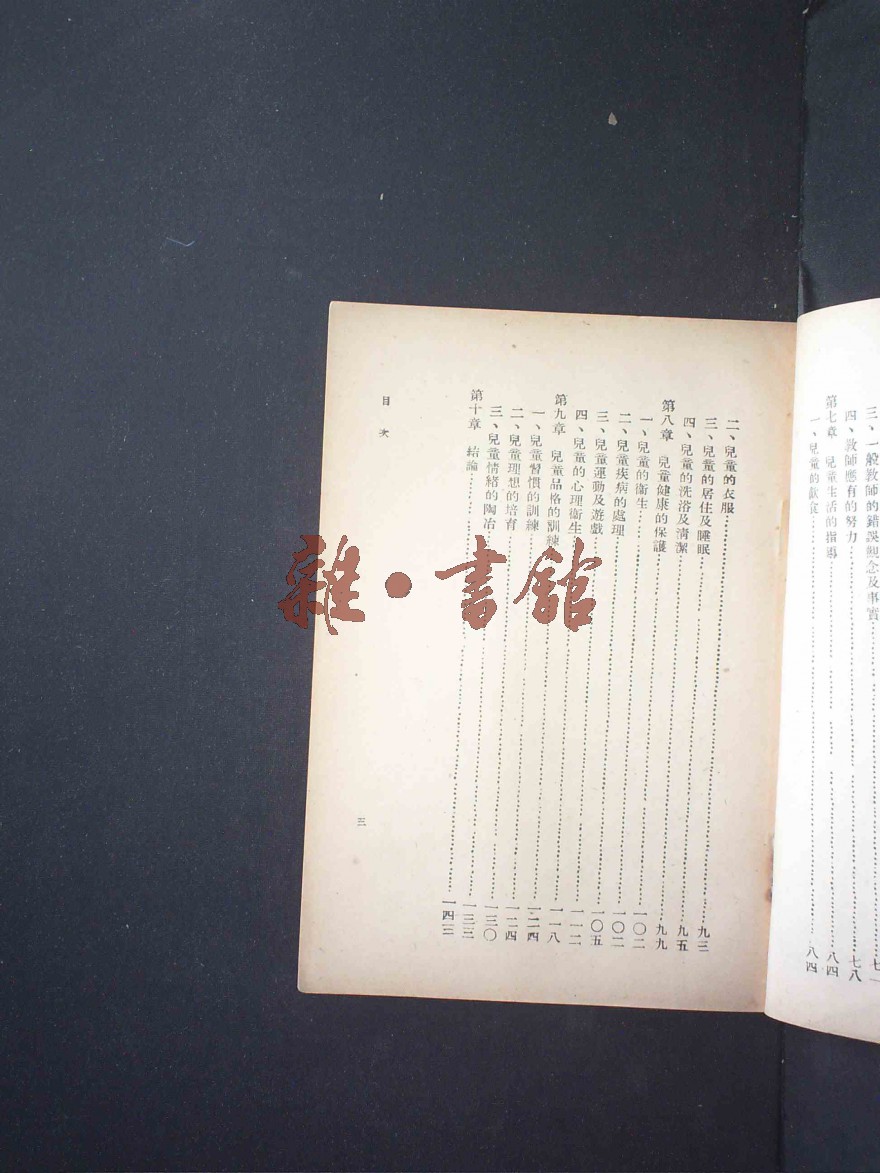 三、一般教師的錯誤觀念及事實……七一
四、教師應有的努力……七八
第七章 兒童生活的指導……八四
一、兒童的飲食……八四
二、兒童的衣服……九三
三、兒童的居住及睡眠……九五
四、兒童的洗浴及清潔……九九
第八章 兒童健康的保護……一〇二
一、兒童的衞生……一〇二
二、兒童疾病的處理……一〇五
三、兒童運動及遊戲……一一二
四、兒童的心理衞生……一一八
第九章 兒童品格的訓練……一二四
一、兒童習慣的訓練……一二四
二、兒童理想的培育……一三〇
三、兒童情緒的陶冶……一三三
第十章 結論……一四三
目次
三
雜·書館